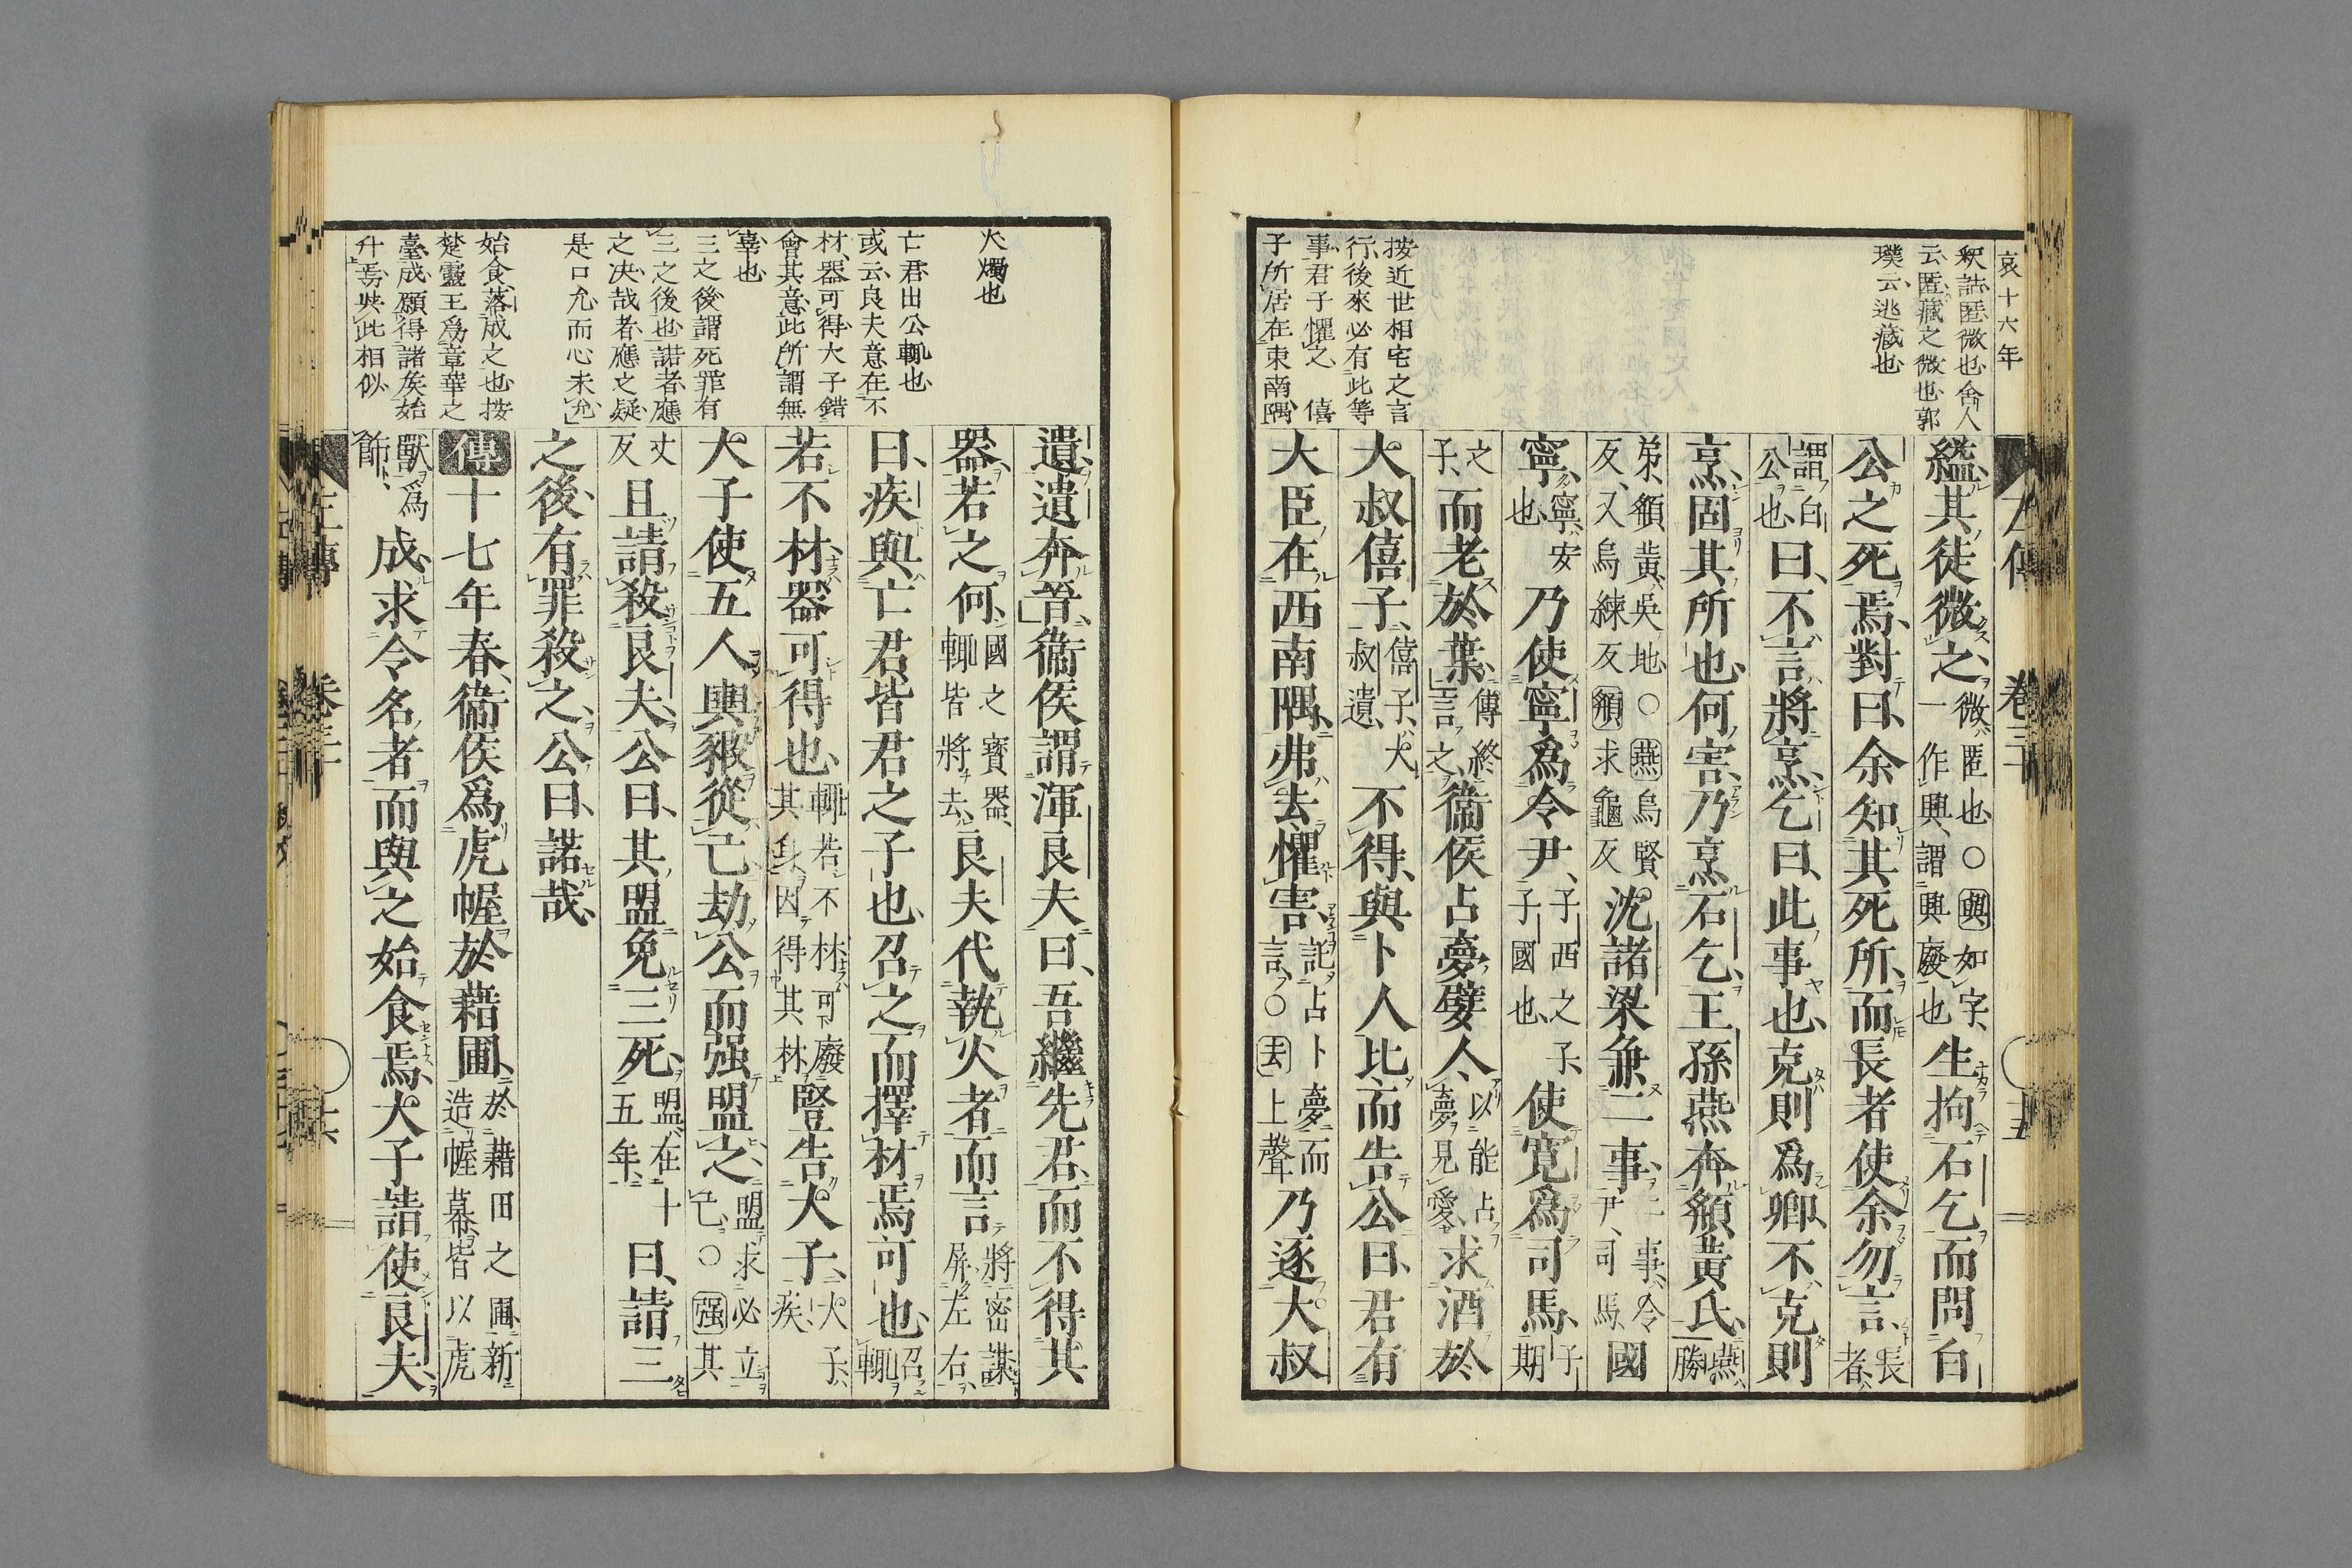 哀十六年
釈詁匿微也舍人
云匿藏之微也郭
璞云逃藏也
按近世相宅之言
行後來必有此等
事君子懼之 僖
子所居在東南隅
縊其徒微之微匿也○與如字一作興謂興廢也生拘石乞而問白
公之死焉對曰余知其死所而長者使余勿言長者
謂白公也曰不言將烹乞曰此事也克則爲卿不克則
烹固其所也何害乃烹石乞王孫燕奔頯黃氏燕勝
弟頯黃吳地○燕烏賢反又烏練反頯求龜反沈諸梁兼二事二事令尹司馬國
寧寧安也乃使寧爲令尹子西之子子國也使寬爲司馬子期
之子而老於葉傳終言之衞侯占夢嬖人以能占夢見愛求酒於
大叔僖子僖子大叔遺不得與卜人比而告公曰君有
大臣在西南隅弗去懼害託占卜夢而言○去上聲乃逐大叔
火燭也
亡君出公輒也
或云良夫意在不
材器可得大子錯
會其意此所謂無
辜也
三之後謂死罪有
三之後也諾者應
之決哉者應之疑
是口允而心未允
始食落成之也按
楚靈王爲章華之
臺成願得諸矦始
升焉與此相似
遺遺奔晉衞侯謂渾良夫曰吾繼先君而不得其
器若之何國之寶器輒皆將去良夫代執火者而言將密謀屏左右
曰疾與亡君皆君之子也召之而擇材焉可也召輒
若不材器可得也輒若不材可廢其身因得其材豎告大子大子疾
大子使五人輿豭從己劫公而强盟之盟求必立己○强其
丈反且請殺良夫公曰其盟免三死盟在十五年曰請三
之後有罪殺之公曰諾哉
傳十七年春衞侯爲虎幄於藉圃於藉田之圃新造幄幕皆以虎
獸爲飾成求令名者而與之始食焉大子請使良夫